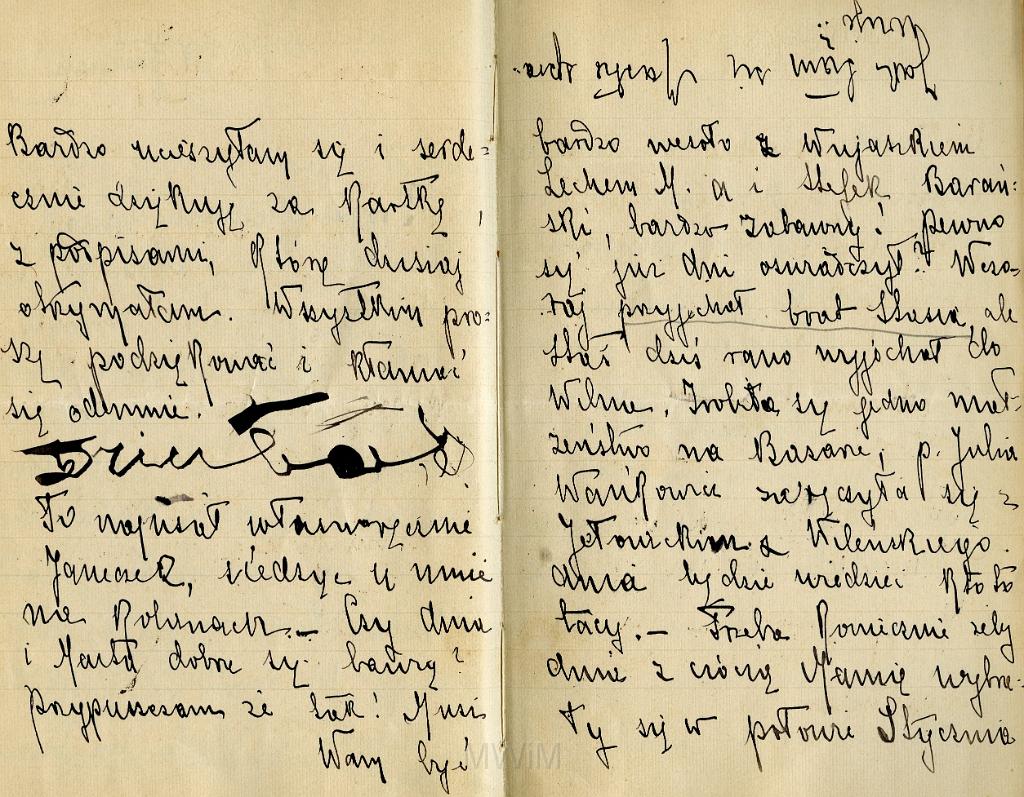 Bardzo ucieszyłam się i serde=
cznie dziękuję za kartkę,
z podpisami, którą dzisiaj
otrzymałam. Wszystkim pro=
szę podziękować i kłaniać
się odemnie.
To napisał własnoręcznie
Janeczek, siedząc u mnie
na kolanach. – Czy Ania
i Marta dobrze się bawią?
Przypuszczam że tak! Musi
Wam być
bardzo wesoło z Wujaszkiem
Lechem M. a i Stefek Barań=
ski, bardzo zabawny! Pewno
się już Ani oświadczył? Wczo=
raj przyjechał brat Stasia, ale
Staś dziś rano wyjechał do
Wilna. Zrobiło się jedno mał=
żeństwo na Bazarze, p. Julia
Wańkowicz zaręczyła się z
Jełowickim z Wileńskiego.
Ania będzie wiedzieć kto to
tacy. – Trzeba koniecznie żeby
Ania z ciocią Manią wybra=
ły się w połowie Stycznia
MWiM